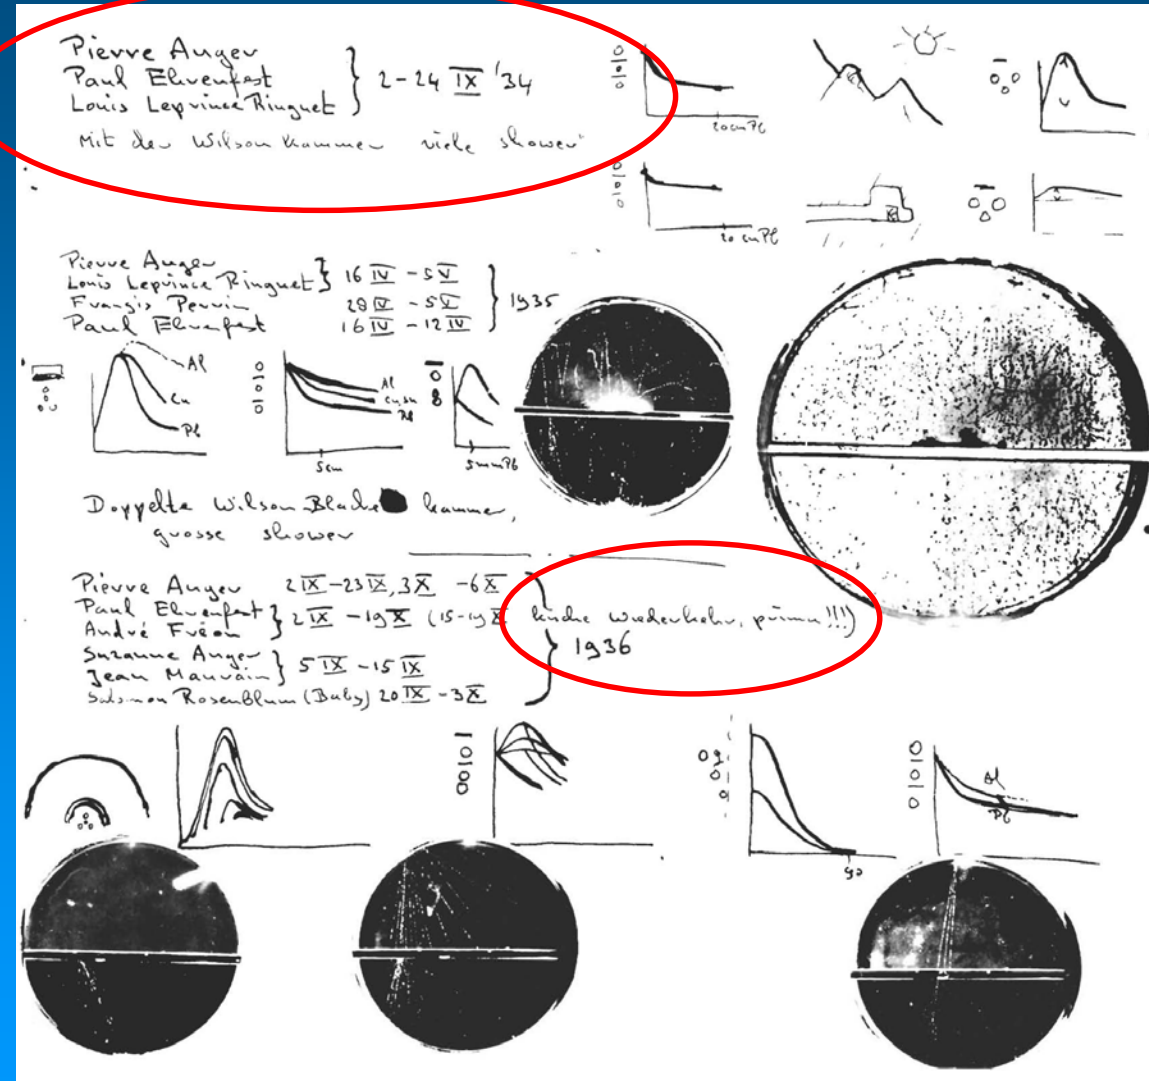 Pierre Auger
Paul Ehrenfest
Louis Leprince Ringuet
2-24 IX '34
Mit der Wilson Kammer viele shower
20 cm Pb
20 cm Pb
Pierre Auger
Louis Leprince Ringuet
16 IV - 5 V
Francis Perrin
28 IV - 5 V
Paul Ehrenfest
16 IV - 12 IV
1935
Al
Cu
Pb
Al
Pb
5cm
5mm Pb
Doppelte Wilson Kammer,
grosse shower
Pierre Auger 2 IX - 23 IX, 3 X - 6 X
Paul Ehrenfest
André Fréon
2 IX - 19 X (15-19 X Wiederkehr, prima!!!)
Suzanne Auger
Jean Mauvain
5 IX - 15 IX
Salomon Rosenblum (Baby) 20 IX - 3 X
1936
Al
Pb
90